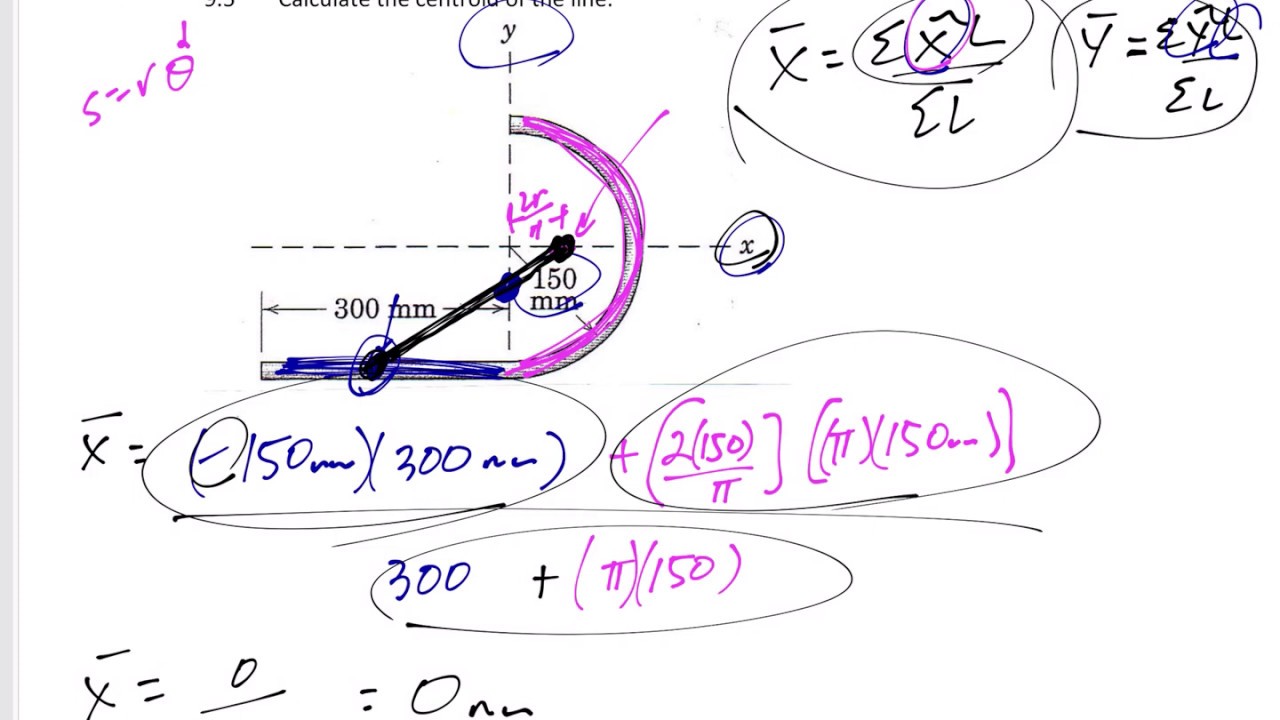 9.5 Calculate the centroid of the line.
y
s = r θ
x̄ = Σ x̃ L / Σ L
ȳ = Σ ỹ L / Σ L
2r / π
x
150
mm
300 mm
x̄ = (-150mm)(300mm) + [2(150) / π] [(π)(150mm)]
300 + (π)(150)
x̄ = 0 = 0 mm